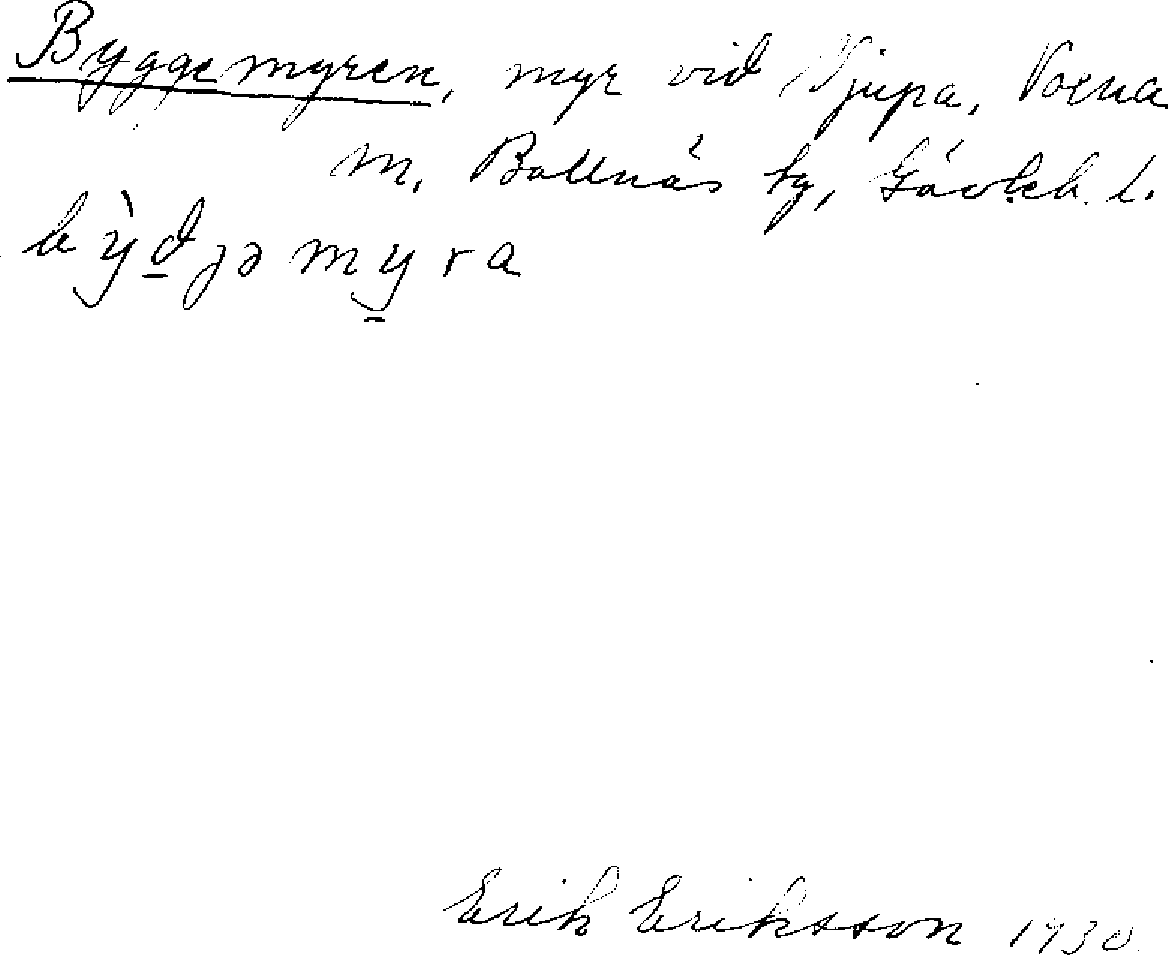 Byggemyren, myr vid Djupa, Voxna
m, Bollnäs tg, Gävleb. l.
bỳdjəmyra
Erik Eriksson 1930